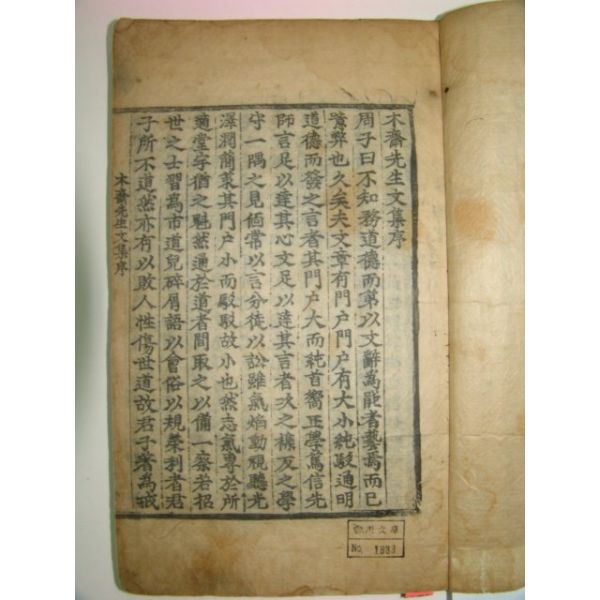 木齋先生文集序
周子曰不知務道德而第以文辭爲能者藝焉而已
噫弊也久矣夫文章有門戶門戶有大小純駁通明
道德而發之言者其門戶大而純首嚮正學篤信先
師言足以達其心文足以達其言者次之樸反之學
守一隅之見個常以言分徒以訟雖氣焰動視聽光
澤潤簡策其門戶小而駁駁故小也然志氣專於所
適堂宇猶之魁然通於道者間取之以備一察若招
世之士習爲市道兒碎屑語以會俗以規榮利者君
子所不道然亦有以敗人性傷世道故君子著爲戒
木齋先生文集序
文庫
No. 1993